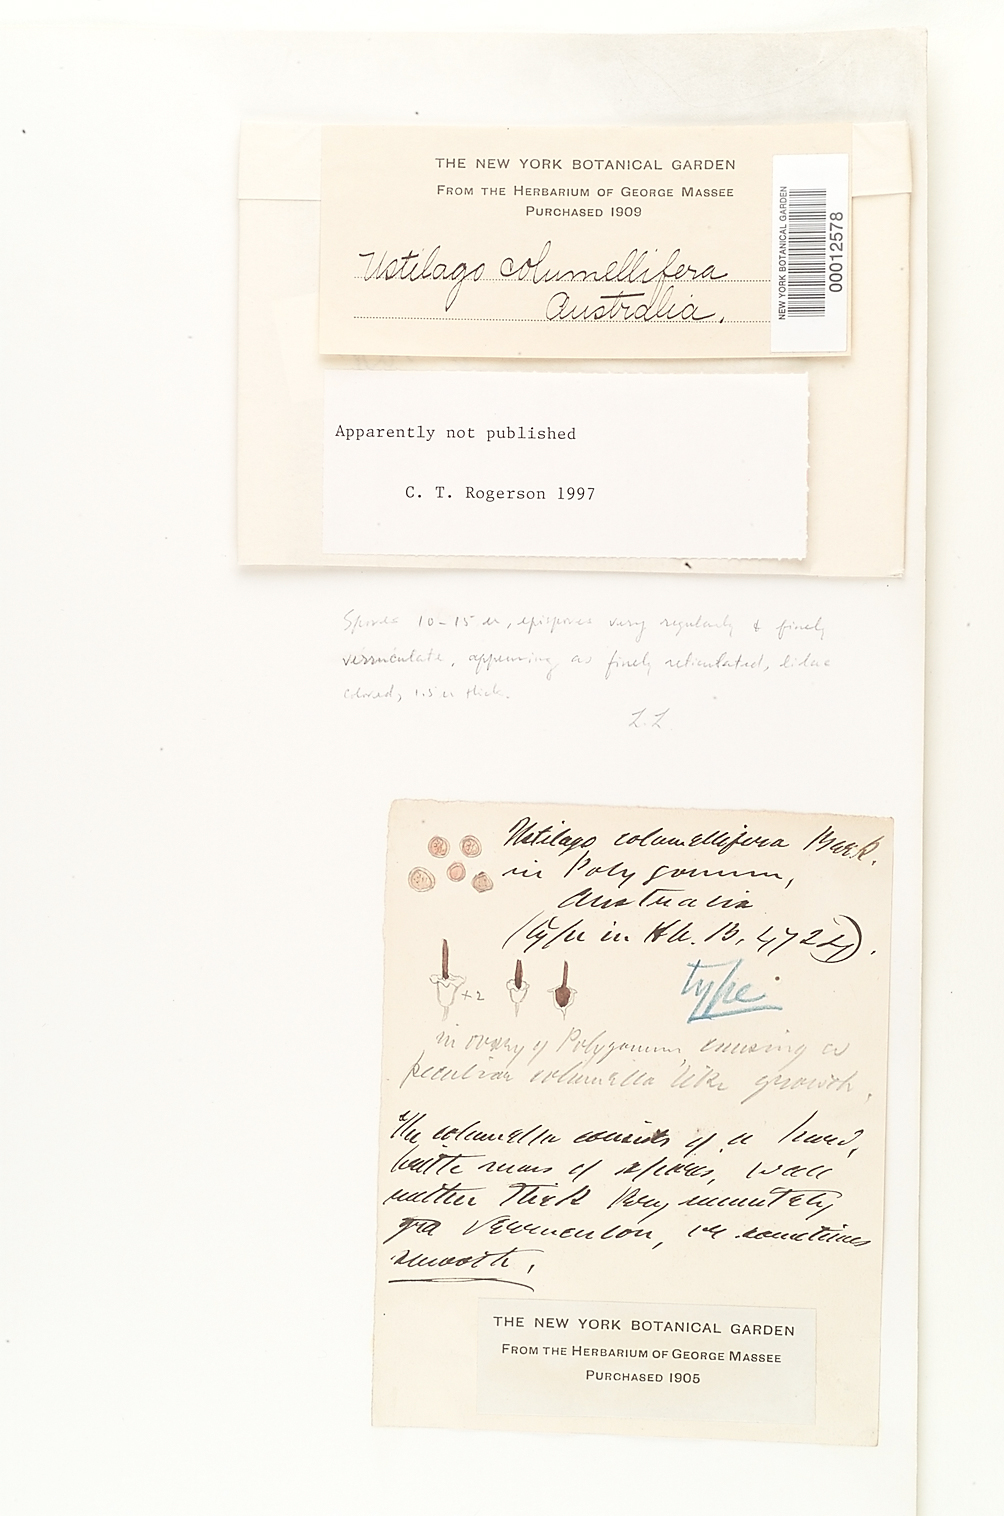 THE NEW YORK BOTANICAL GARDEN
FROM THE HERBARIUM OF GEORGE MASSEE
PURCHASED 1909
Ustilago columellifera
Australia.
NEW YORK BOTANICAL GARDEN
00012578
Apparently not published
C. T. Rogerson 1997
Spores 10-15 u, epispores very regularly & finely
verruculate, appearing as finely reticulated, lilac
colored, 1.5 u thick.
L.L.
Ustilago columellifera Berk.
in Polygonum,
Australia
(Type in Hb. B. 4724).
+2
type
in ovary of Polygonum, causing a
peculiar columella like growth.
The columella consists of a hard,
brittle mass of spores, wall
rather thick very minutely
or sometimes
smooth.
THE NEW YORK BOTANICAL GARDEN
FROM THE HERBARIUM OF GEORGE MASSEE
PURCHASED 1905